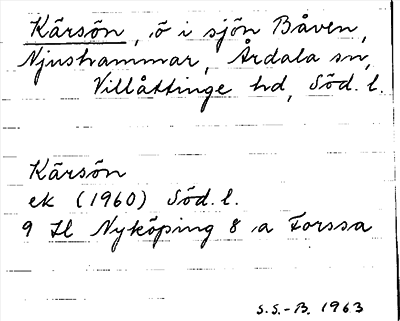 Kärsön, ö i sjön Båven,
Njushammar, Årdala sn,
Villåttinge hd, Söd. l.
Kärsön
ek (1960) Söd. l.
9 H Nyköping 8 a Forssa
S.S.-B. 1963